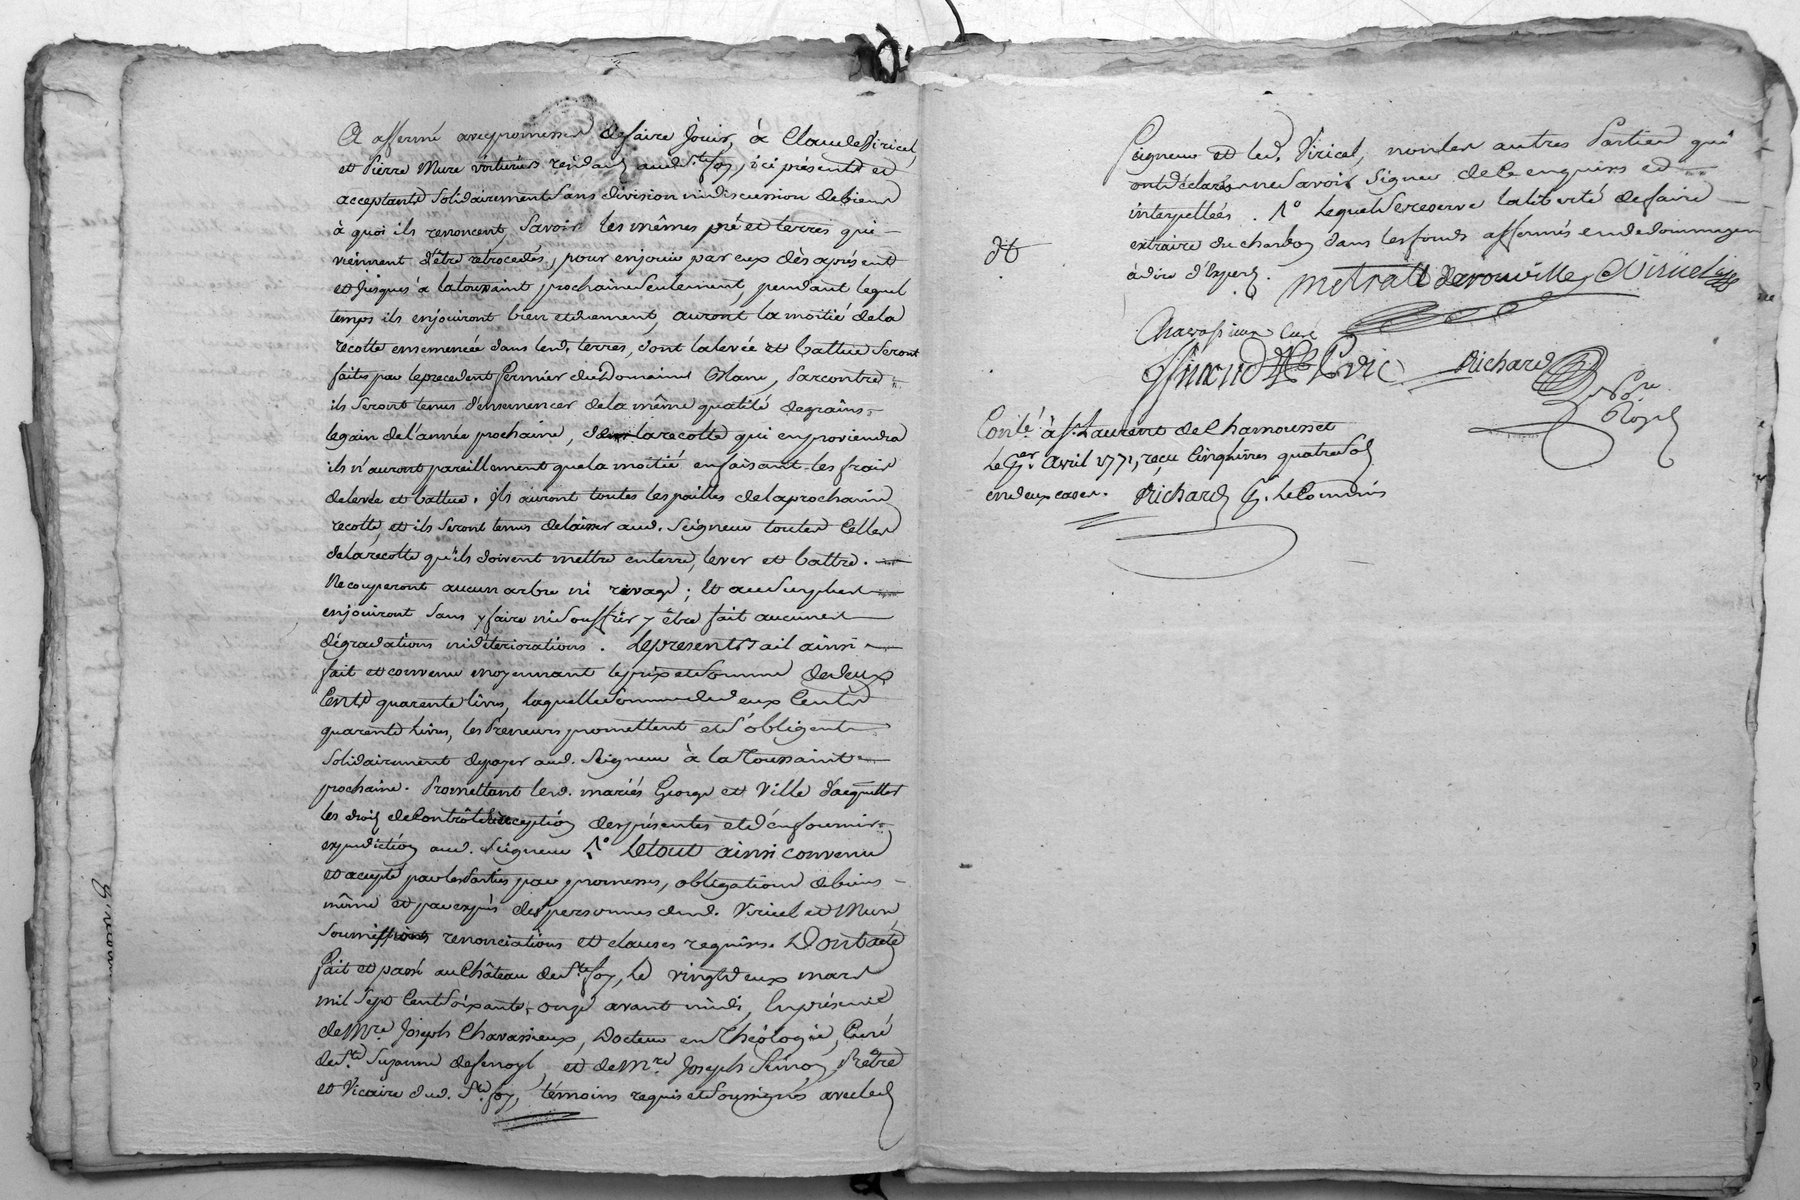 A affermé avec promesse de faire Jouir, à Claude Viricel,
et Pierre Mure voituriers résidants aud. Ste foy, ici présents et
acceptants solidairement sans division ni discussion de biens
à quoi ils renoncent, savoir les mêmes pré et terres qui -
viennent d'être rétrocedés, pour en jouir par eux dès à présent
et Jusques à la toussaint prochaine seulement, pendant lequel
temps ils en jouiront bien et duement, auront la moitié de la
recolte ensemencée dans lesd. terres, dont la levée et battue seront
faites par le précédent fermier du Domaine , Par contre
ils seront tenus d'ensemencer de la même qualité de grains
le gain de l'année prochaine, la recolte qui en proviendra
ils n'auront pareillement que la moitié en faisant les frais
de levée et battue. Ils auront toutes les pailles de la prochaine
recolte, et ils seront tenus de laisser aud. Seigneur toutes Celles
de la recolte qu'ils doivent mettre en terre, lever et battre.
Ne couperont aucun arbre ni rivage ; Et au surplus
en jouiront sans y faire ni souffrir y être fait aucunes
dégradations ni détériorations. Le present Bail ainsi
fait et convenu moyennant le prix et somme de deux
Cents quarente livres, laquelle somme de deux Cents
quarente livres, les Preneurs promettent et s'obligent
solidairement de payer aud. Seigneur à la Toussaint
prochaine. Promettant lesd. mariés George et Ville d'acquitter
les droits de Contrôle des présentes et d'en fournir
expédiction aud. Seigneur 1o Le tout ainsi convenu
et accepté par les Parties par promesses, obligations de biens
même et par exprès des personnes desd. Viricel et Mure
soumissions renonciations et clauses requises. Dont acte
fait et passé au Château de Ste foy, le vingt deux mars
mil sept Cent soixante onze avant midi, En présence
de Mre Joseph Chavassieux, Docteur en Théologie, Curé
de Ste Suzanne , et de Mre Joseph Simon, Prêtre
et Vicaire dud. Ste foy, témoins requis et soussignés avec led.
Seigneur et led. Viricel, non les autres Parties qui
ont déclaré ne savoir signer de Ce enquises et
interpellées. 1o Lequel se reserve la liberté de faire
extraire du charbon dans les fonds affermés en dedommageant
à dire d'Experts. metrall derouville C Viricel
Chavassieux Curé
Simond Ptre Vic Richard
Nore
Royal
Conlé à St Laurent de Chamousset
Le 1er avril 1771, reçu Cinq livres quatre sols
en deux cases. Richard